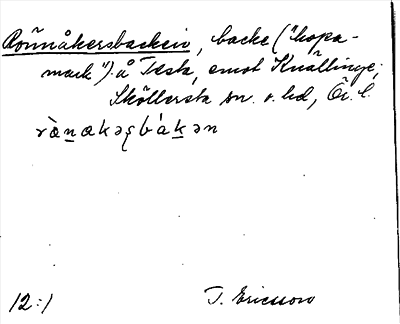 Rönnåkersbacken, backe ("hopa-
mark") å Testa, emot Knällinge;
Sköllersta sn. o. hd, Ör. l.
12:1 J. Ericsson